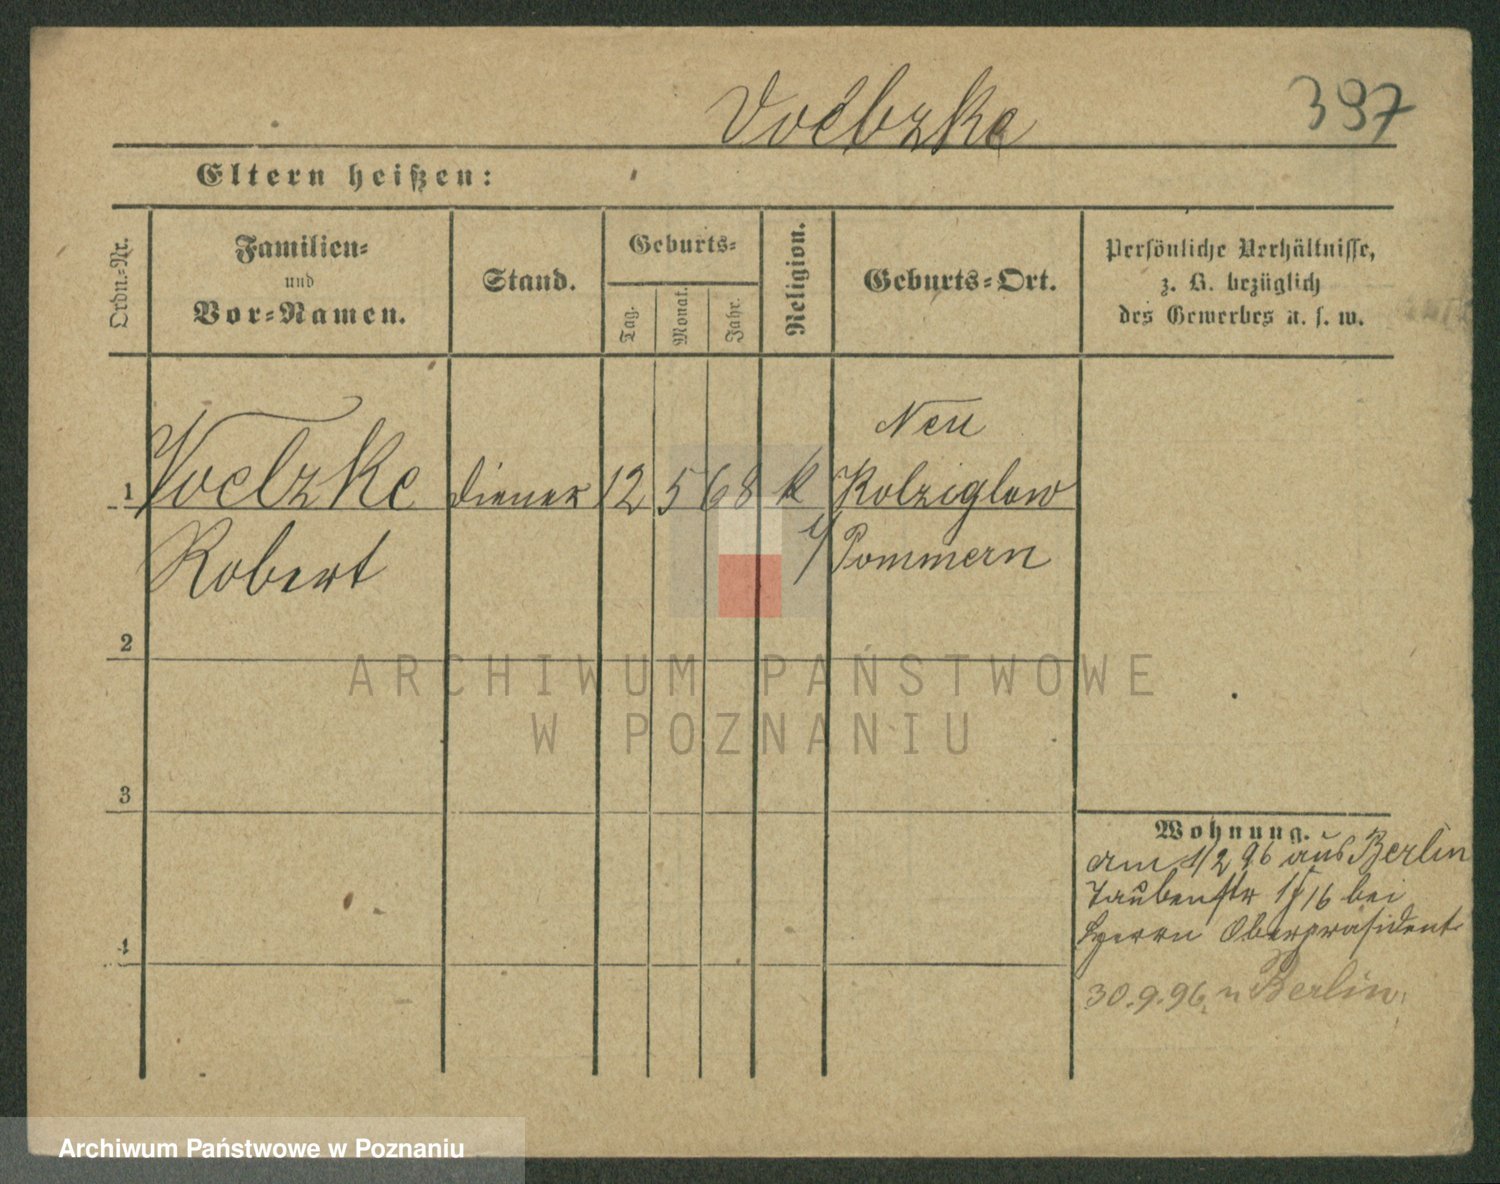 Voelzke
397
Eltern heißen:
Ordn.-Nr.
Familien-
und
Vor-Namen.
Stand.
Geburts-
Tag.
Monat.
Jahr.
Religion.
Geburts-Ort.
Persönliche Verhältnisse,
z. B. bezüglich
des Gewerbes u. s. w.
Neu
1 Voelzke diener 12 5 68 k Kolziglow
Robert Pommern
2
3
4
Wohnung.
am 1/2 96 aus Berlin
Taubenstr 16 bei
Herrn Oberpräsident
30.9.96 n Berlin
ARCHIWUM PAŃSTWOWE
W POZNANIU
Archiwum Państwowe w Poznaniu